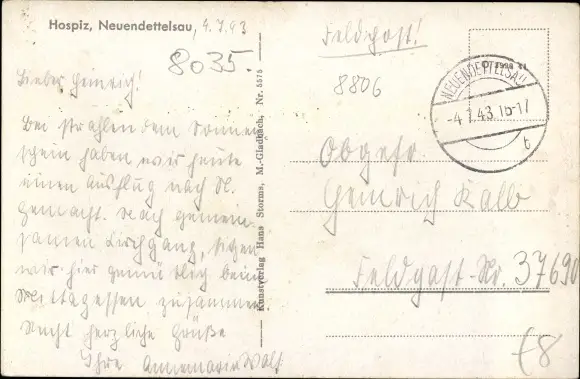 Hospiz, Neuendettelsau, 4.7.43
8035.
Lieber Heinrich!
Bei strahlendem Sonnen
schein haben wir heute
einen Ausflug nach N.
gemacht. Nach gemein-
samen Kirchgang, sitzen
wir hier gemütlich beim
Mittagessen zusammen
Recht herzliche Grüße
Ihre Annemarie Wolf
Kunstverlag Hans Storms, M.-Gladbach, Nr. 5575
Feldpost!
8806
NEUENDETTELSAU
-4.7.43.15-17
t
Obgefr
Heinrich Kalb
Feldpost-Nr. 37690
£8